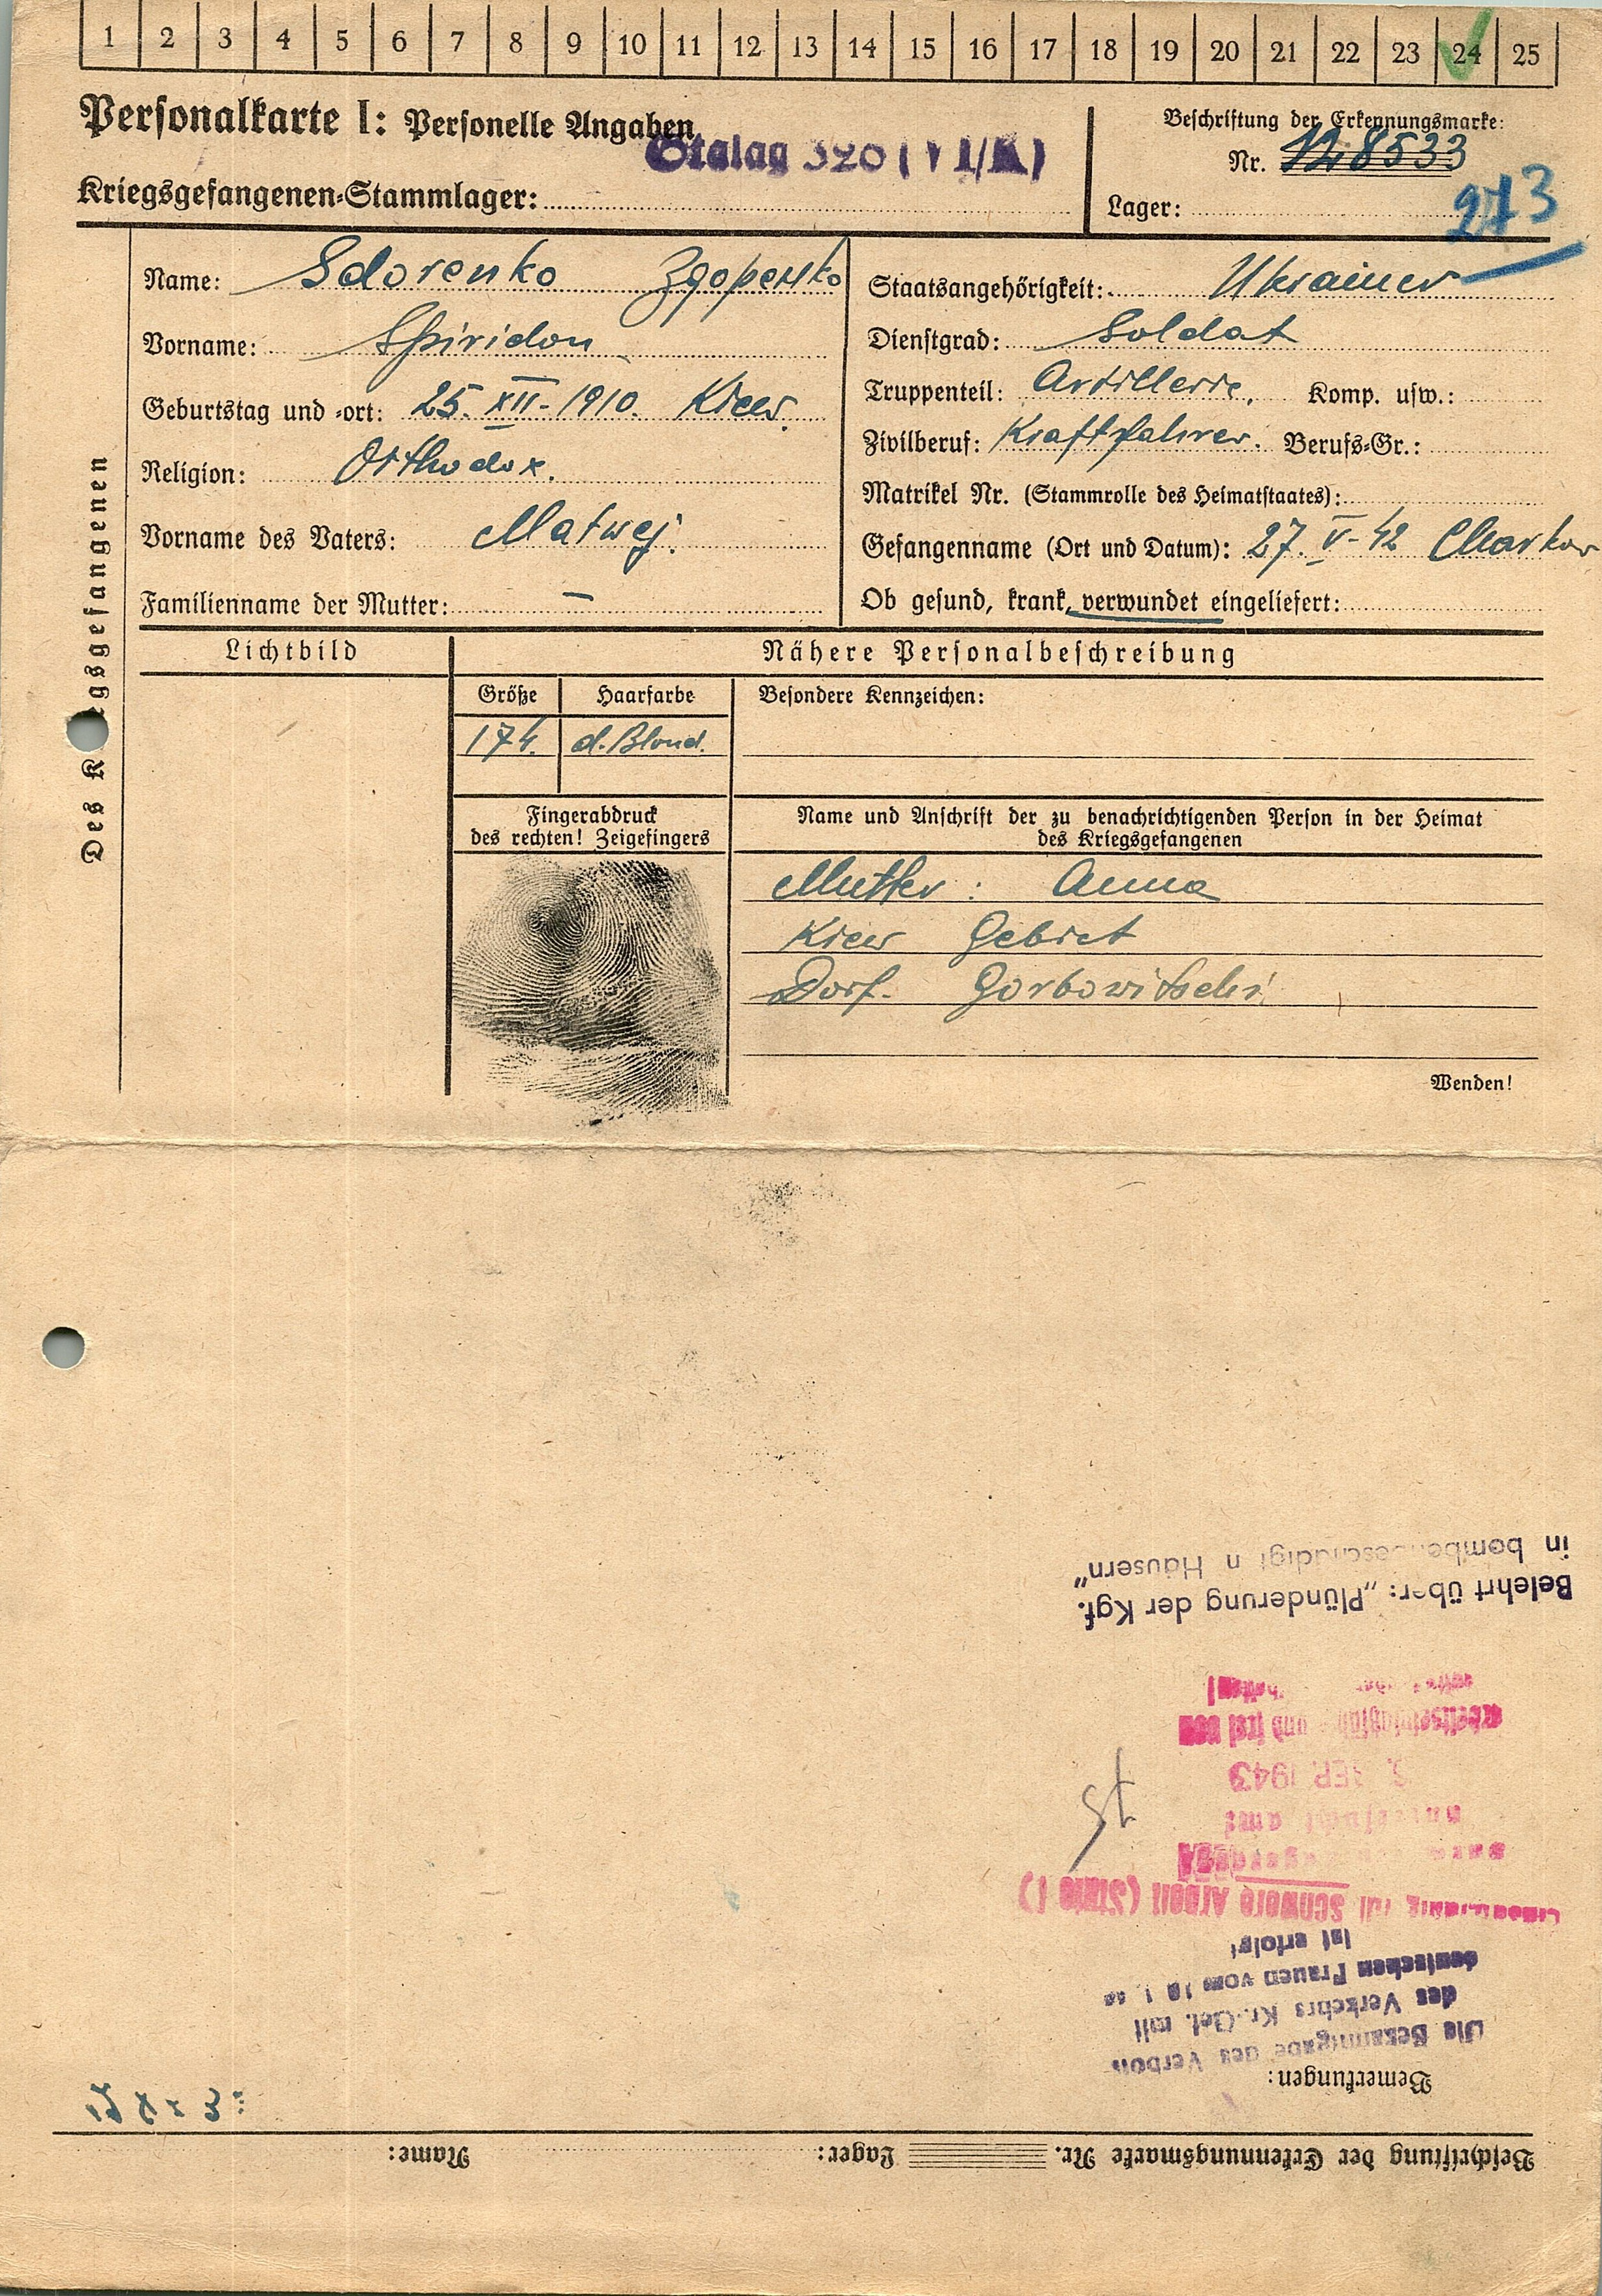 1 2 3 4 5 6 7 8 9 10 11 12 13 14 15 16 17 18 19 20 21 22 23 24 25
Personalkarte I: Personelle Angaben
Stalag
Kriegsgefangenen-Stammlager:
Beschriftung der Erkennungsmarke:
Nr. 128533
Lager:
273
Des Kriegsgefangenen
Name: Sdorenko Здоренко
Vorname: Spiridon
Geburtstag und -ort: 25. XII-1910. Kiew.
Religion: Orthodox.
Vorname des Vaters: Matwej.
Familienname der Mutter: –
Staatsangehörigkeit: Ukrainer
Dienstgrad: Soldat
Truppenteil: Artillerie. Komp. usw.:
Zivilberuf: Kraftfahrer. Berufs-Gr.:
Matrikel Nr. (Stammrolle des Heimatstaates):
Gefangenname (Ort und Datum): 27. V-42 Charkow
Ob gesund, krank, verwundet eingeliefert:
Lichtbild
Nähere Personalbeschreibung
Größe Haarfarbe Besondere Kennzeichen:
174. d. Blond.
Fingerabdruck
des rechten! Zeigefingers
Name und Anschrift der zu benachrichtigenden Person in der Heimat
des Kriegsgefangenen
Mutter: Anna
Kiew Gebiet
Dorf. Gorbowitschi
Wenden!
Beschriftung der Erkennungsmarke Nr. Lager: Name:
Bemerkungen:
Die Bekanntgabe des Verbots
des Verkehrs Kr.-Gef. mit
deutschen Frauen vom
ist erfolgt
für schwere Arbeit (Stufe I)
SEP. 1943
und frei von
Belehrt über: „Plünderung der Kgf.
in bombenbeschädigten Häusern"